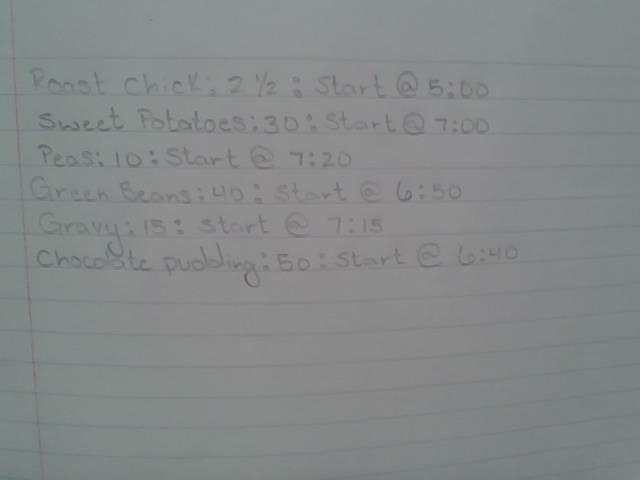 Roast Chick: 2 1/2 : Start @ 5:00
Sweet Potatoes: 30 : Start @ 7:00
Peas: 10 : Start @ 7:20
Green Beans: 40 : Start @ 6:50
Gravy: 15 : Start @ 7:15
Chocolate pudding: 50 : Start @ 6:40